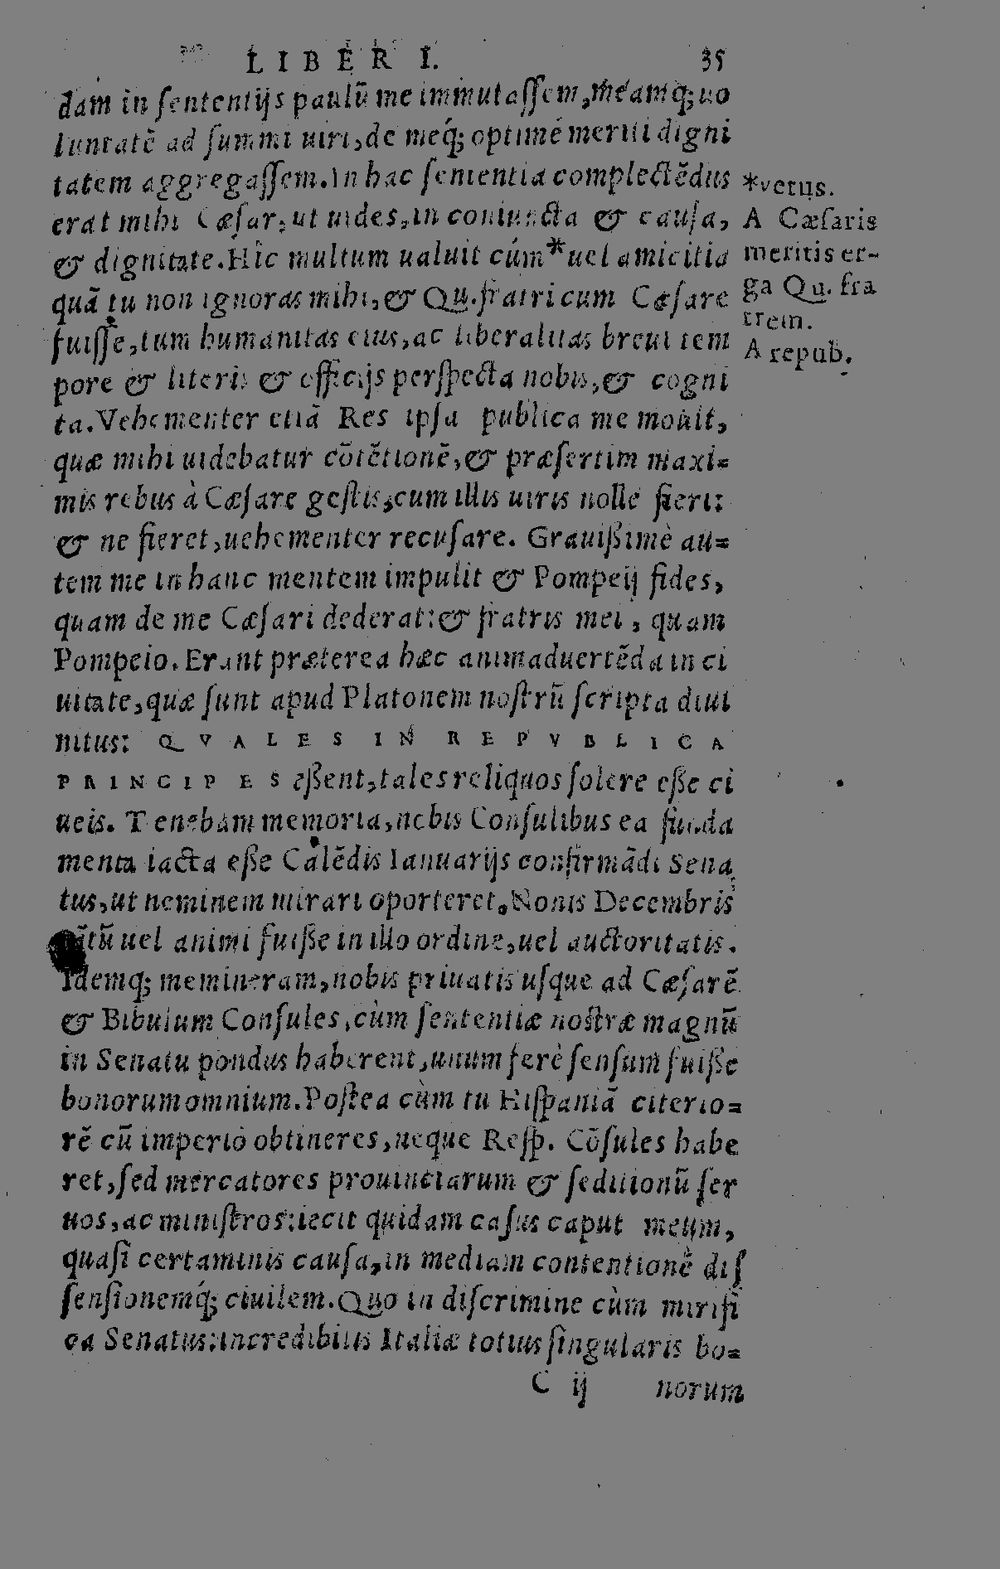 LIBER I. 35
dam in ſententijs paulū me immutaſſem, meamq; uo
luntatē ad ſummi uiri, de meq́; optimè meriti digni
tatem aggregaſſem. In hac ſententia complectēdus
erat mihi Cæſar, ut uides, in coniuncta & cauſa,
& dignitate. Hic multum ualuit cúm *uel amicitia
quā tu non ignoras mihi, & Qu. fratri cum Cæſare
fuiſſe, tum humanitas eius, ac liberalitas breui tem
pore & literis & officijs perſpecta nobis, & cogni
ta. Vehementer etiā Res ipſa publica me mouit,
quæ mihi uidebatur cōtētionē, & præſertim maxi=
mis rebus à Cæſare geſtis, cum illis uiris nolle fieri:
& ne fieret, uehementer recuſare. Grauißimè au=
tem me in hanc mentem impulit & Pompeij fides,
quam de me Cæſari dederat: & fratris mei, quam
Pompeio. Erant præterea hæc animaduertēda in ci
uitate, quæ ſunt apud Platonem noſtrū ſcripta diui
nitus: QVALES IN REPVBLICA
PRINCIPES eßent, tales reliquos ſolere eße ci
ueis. Tenebam memoria, nobis Conſulibus ea funda
menta iacta eße Calēdis Ianuarijs confirmādi Sena
tus, ut neminem mirari oporteret, Nonis Decembris
tātū uel animi fuiße in illo ordine, uel auctoritatis.
Idemq; memineram, nobis priuatis uſque ad Cæſarē
& Bibulum Conſules, cùm ſententiæ noſtræ magnū
in Senatu pondus haberent, unum ferè ſenſum fuiße
bonorum omnium. Poſtea cùm tu Hiſpaniā citerio=
rē cū imperio obtineres, neque Reſp. Cōſules habe
ret, ſed mercatores prouinciarum & ſeditionū ſer
uos, ac miniſtros: iecit quidam caſus caput meum,
quaſi certaminis cauſa, in mediam contentionē diſ
ſenſionemq́; ciuilem. Quo in diſcrimine cùm mirifi
ca Senatus: incredibilis Italiæ totius ſingularis bo=
C ij norum
*vetus.
A Cæſaris
meritis er-
ga Qu. fra
trem.
A repub.